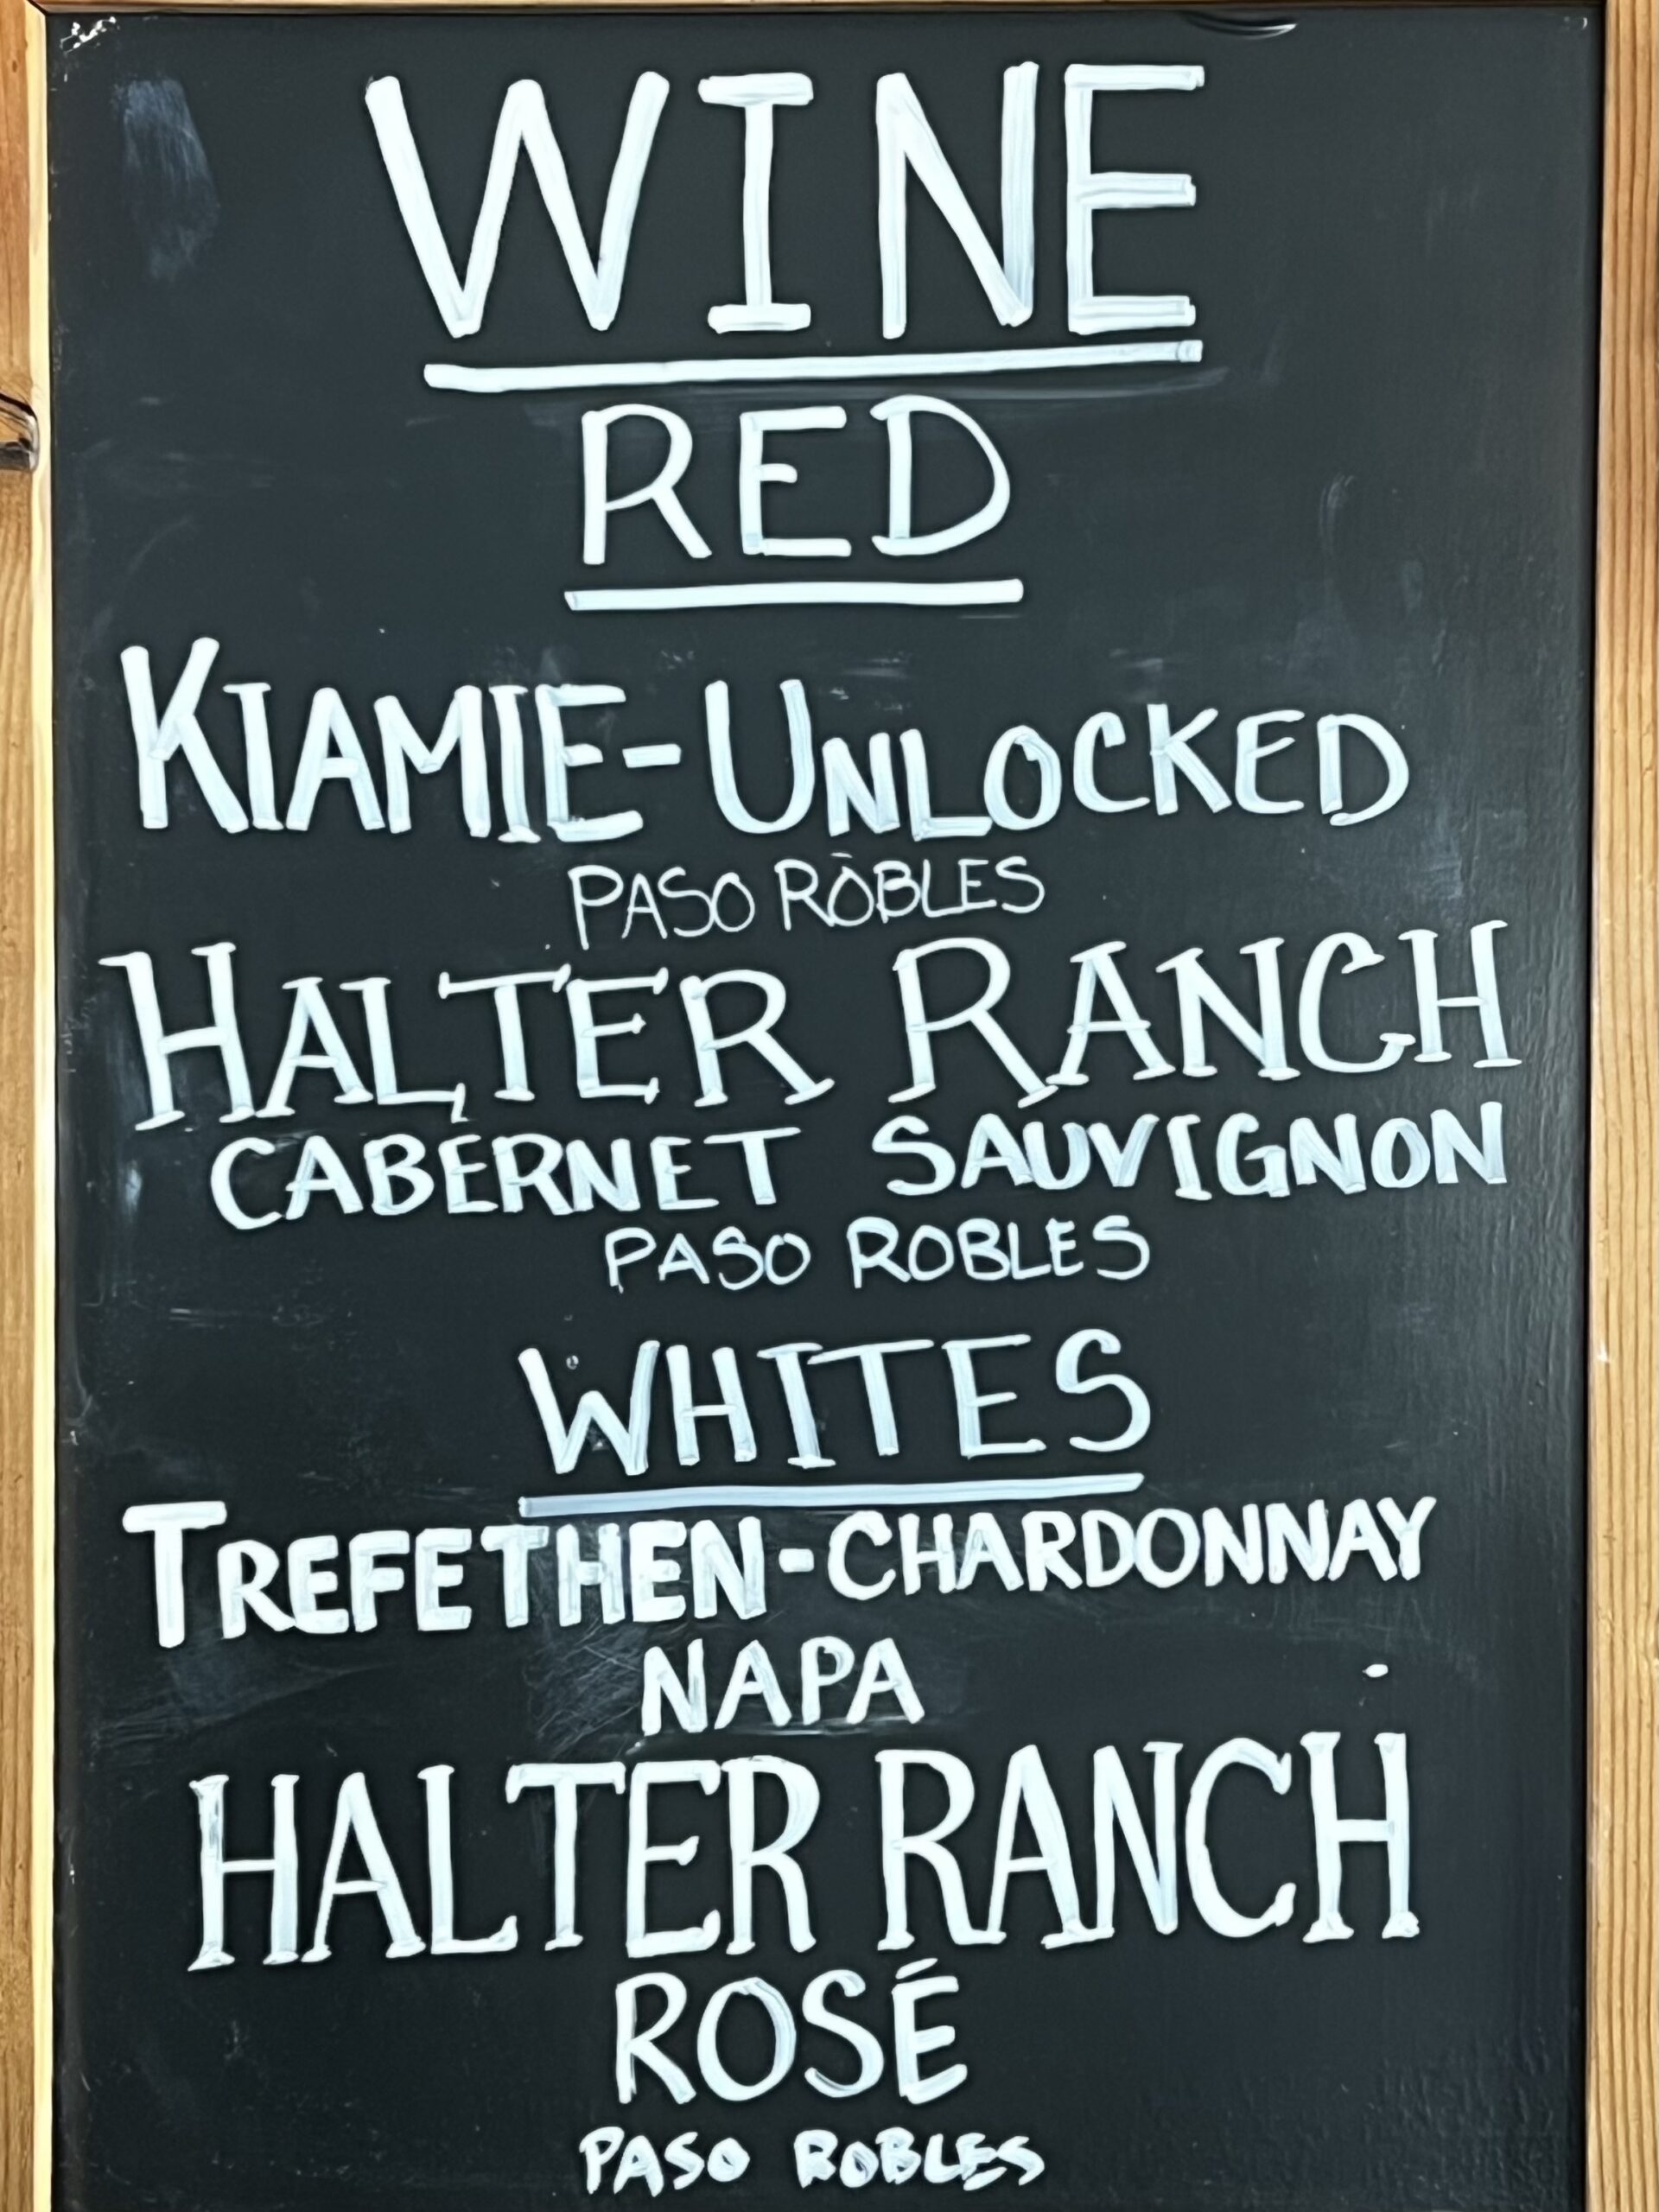 WINE
RED
KIAMIE-UNLOCKED
PASO ROBLES
HALTER RANCH
CABERNET SAUVIGNON
PASO ROBLES
WHITES
TREFETHEN-CHARDONNAY
NAPA
HALTER RANCH
ROSÉ
PASO ROBLES